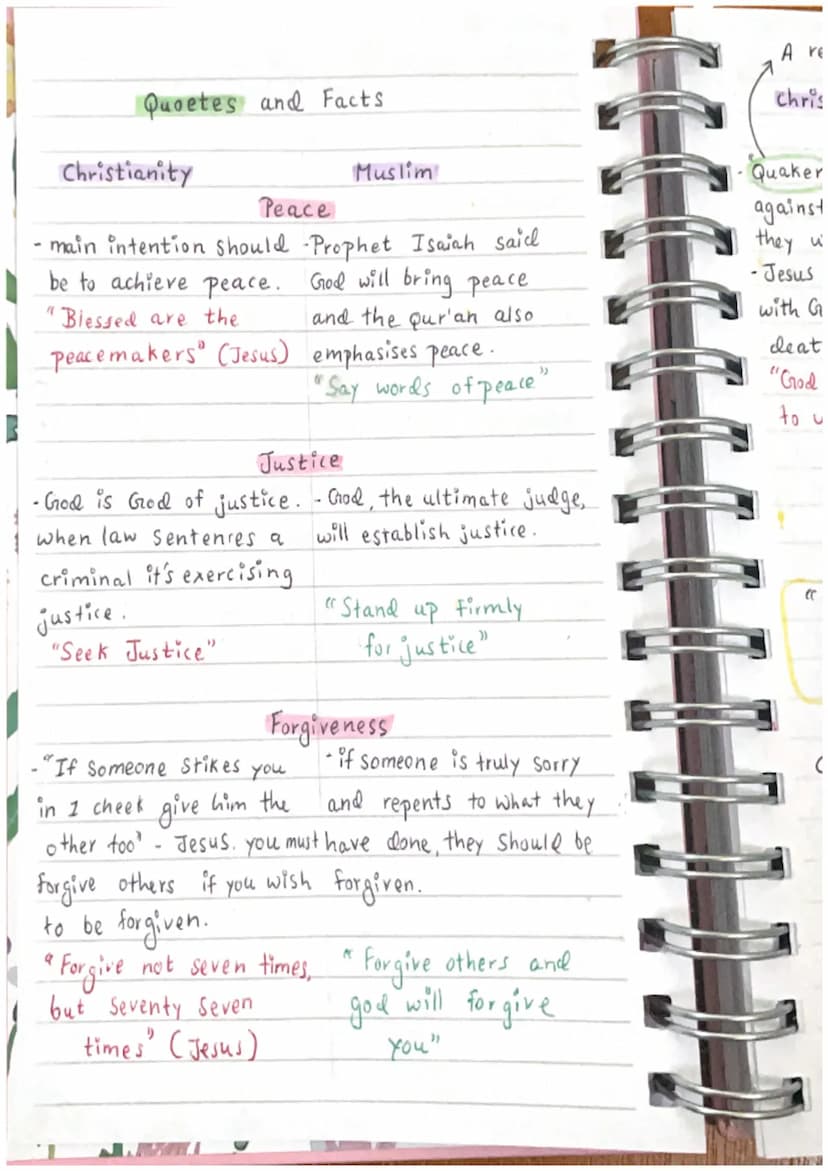 Quoetes and Facts
Christianity
Muslim
Peace
- main intention should
be to achieve peace.
"Blessed are the
peacemakers" (Jesus)
-Prophet Isaiah said
God will bring peace
and the qur'an also
emphasises peace.
"Say words of peace"
Justice
- God is God of justice.
when law sentenres a
criminal it's exercising
justice.
"Seek Justice"
- God, the ultimate judge,
will establish justice.
"Stand up firmly
for justice"
Forgiveness
- "If someone stikes you
in 1 cheek give him the
other too" - Jesus. you must
forgive others if you wish
to be forgiven.
"Forgive not seven times,
but seventy seven
times" (Jesus)
- if someone is truly sorry
and repents to what they
have done, they should be
forgiven.
"Forgive others and
god will forgive
you"
A re
Chris
- "Quaker
against
they w
- Jesus
with G
deat
"God
to u
"